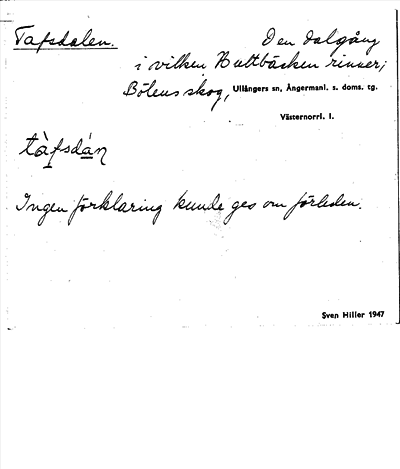 Tafsdalen. Den dalgång
i vilken Buttbäcken rinner;
Bölens skog, Ullångers sn, Ångermanl. s. doms. tg.
Västernorrl. l.
tàfsdán
Ingen förklaring kunde ges om förleden.
Sven Hiller 1947